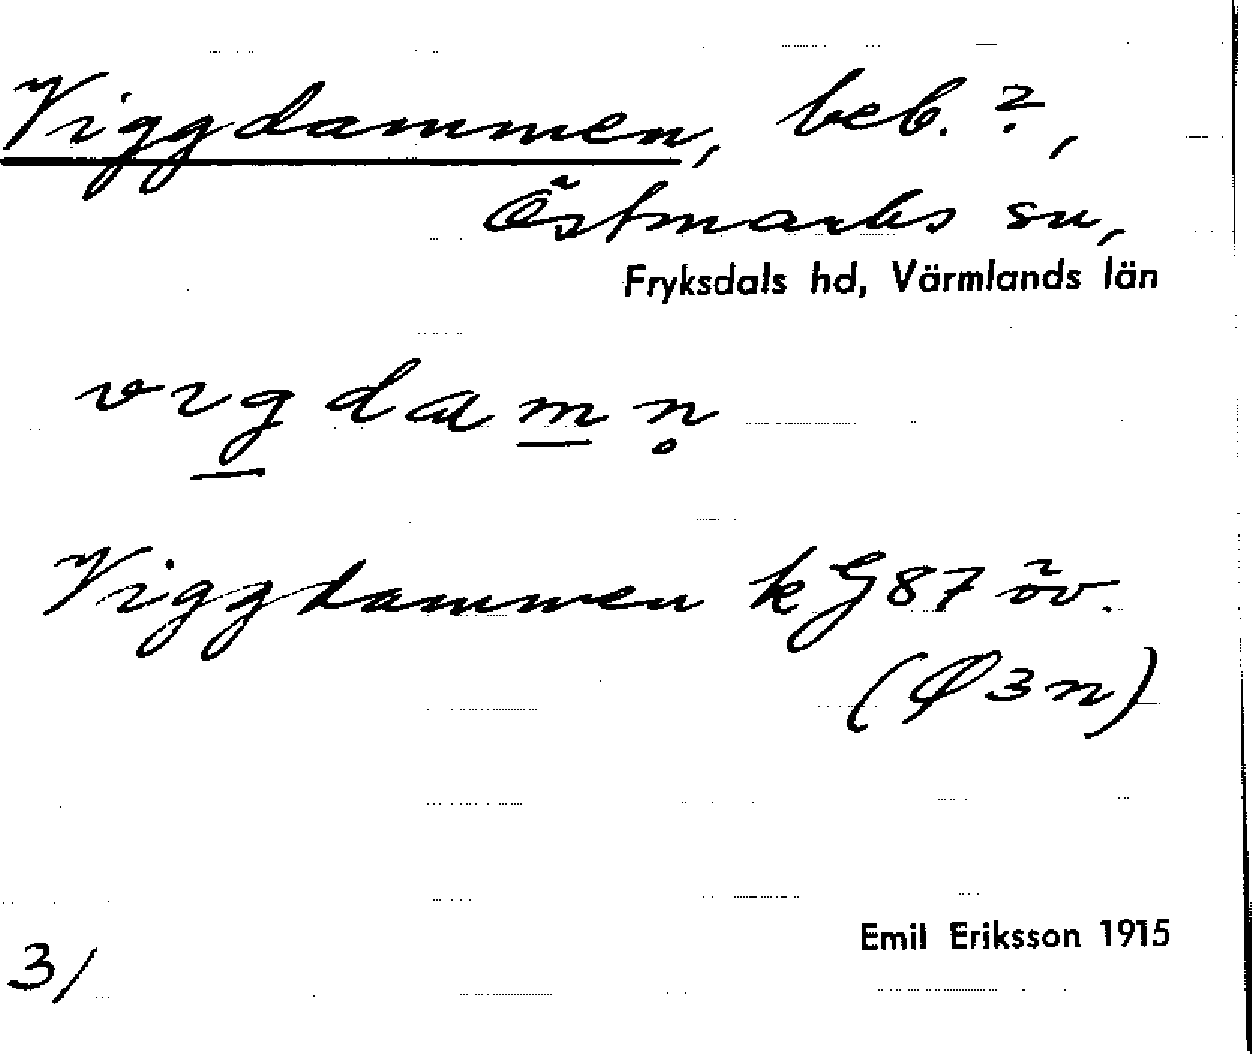 Viggdammen, beb. ?,
Östmarks sn,
Fryksdals hd, Värmlands län
vıg̲dam̲n̥
Viggdammen kG87 öv.
(Ø3n)
Emil Eriksson 1915
3/